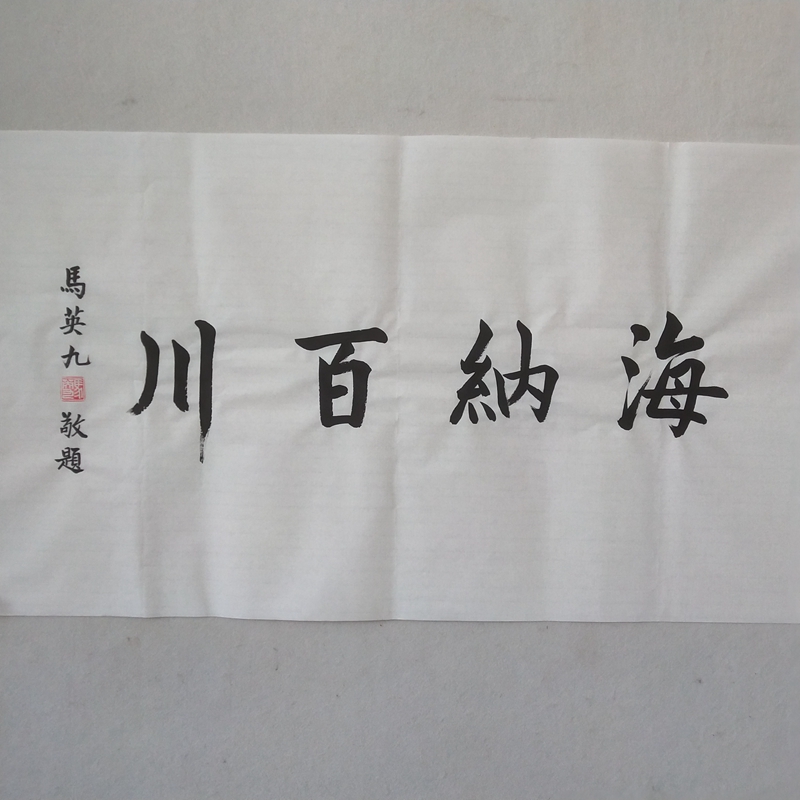 海納百川
馬英九
敬題